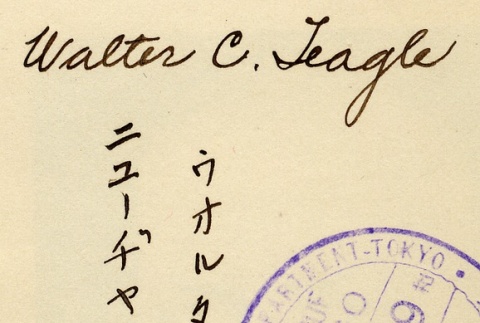 Walter C. Teagle
ウオルタ
ニユーヂヤ
PARTMENT-TOKYO